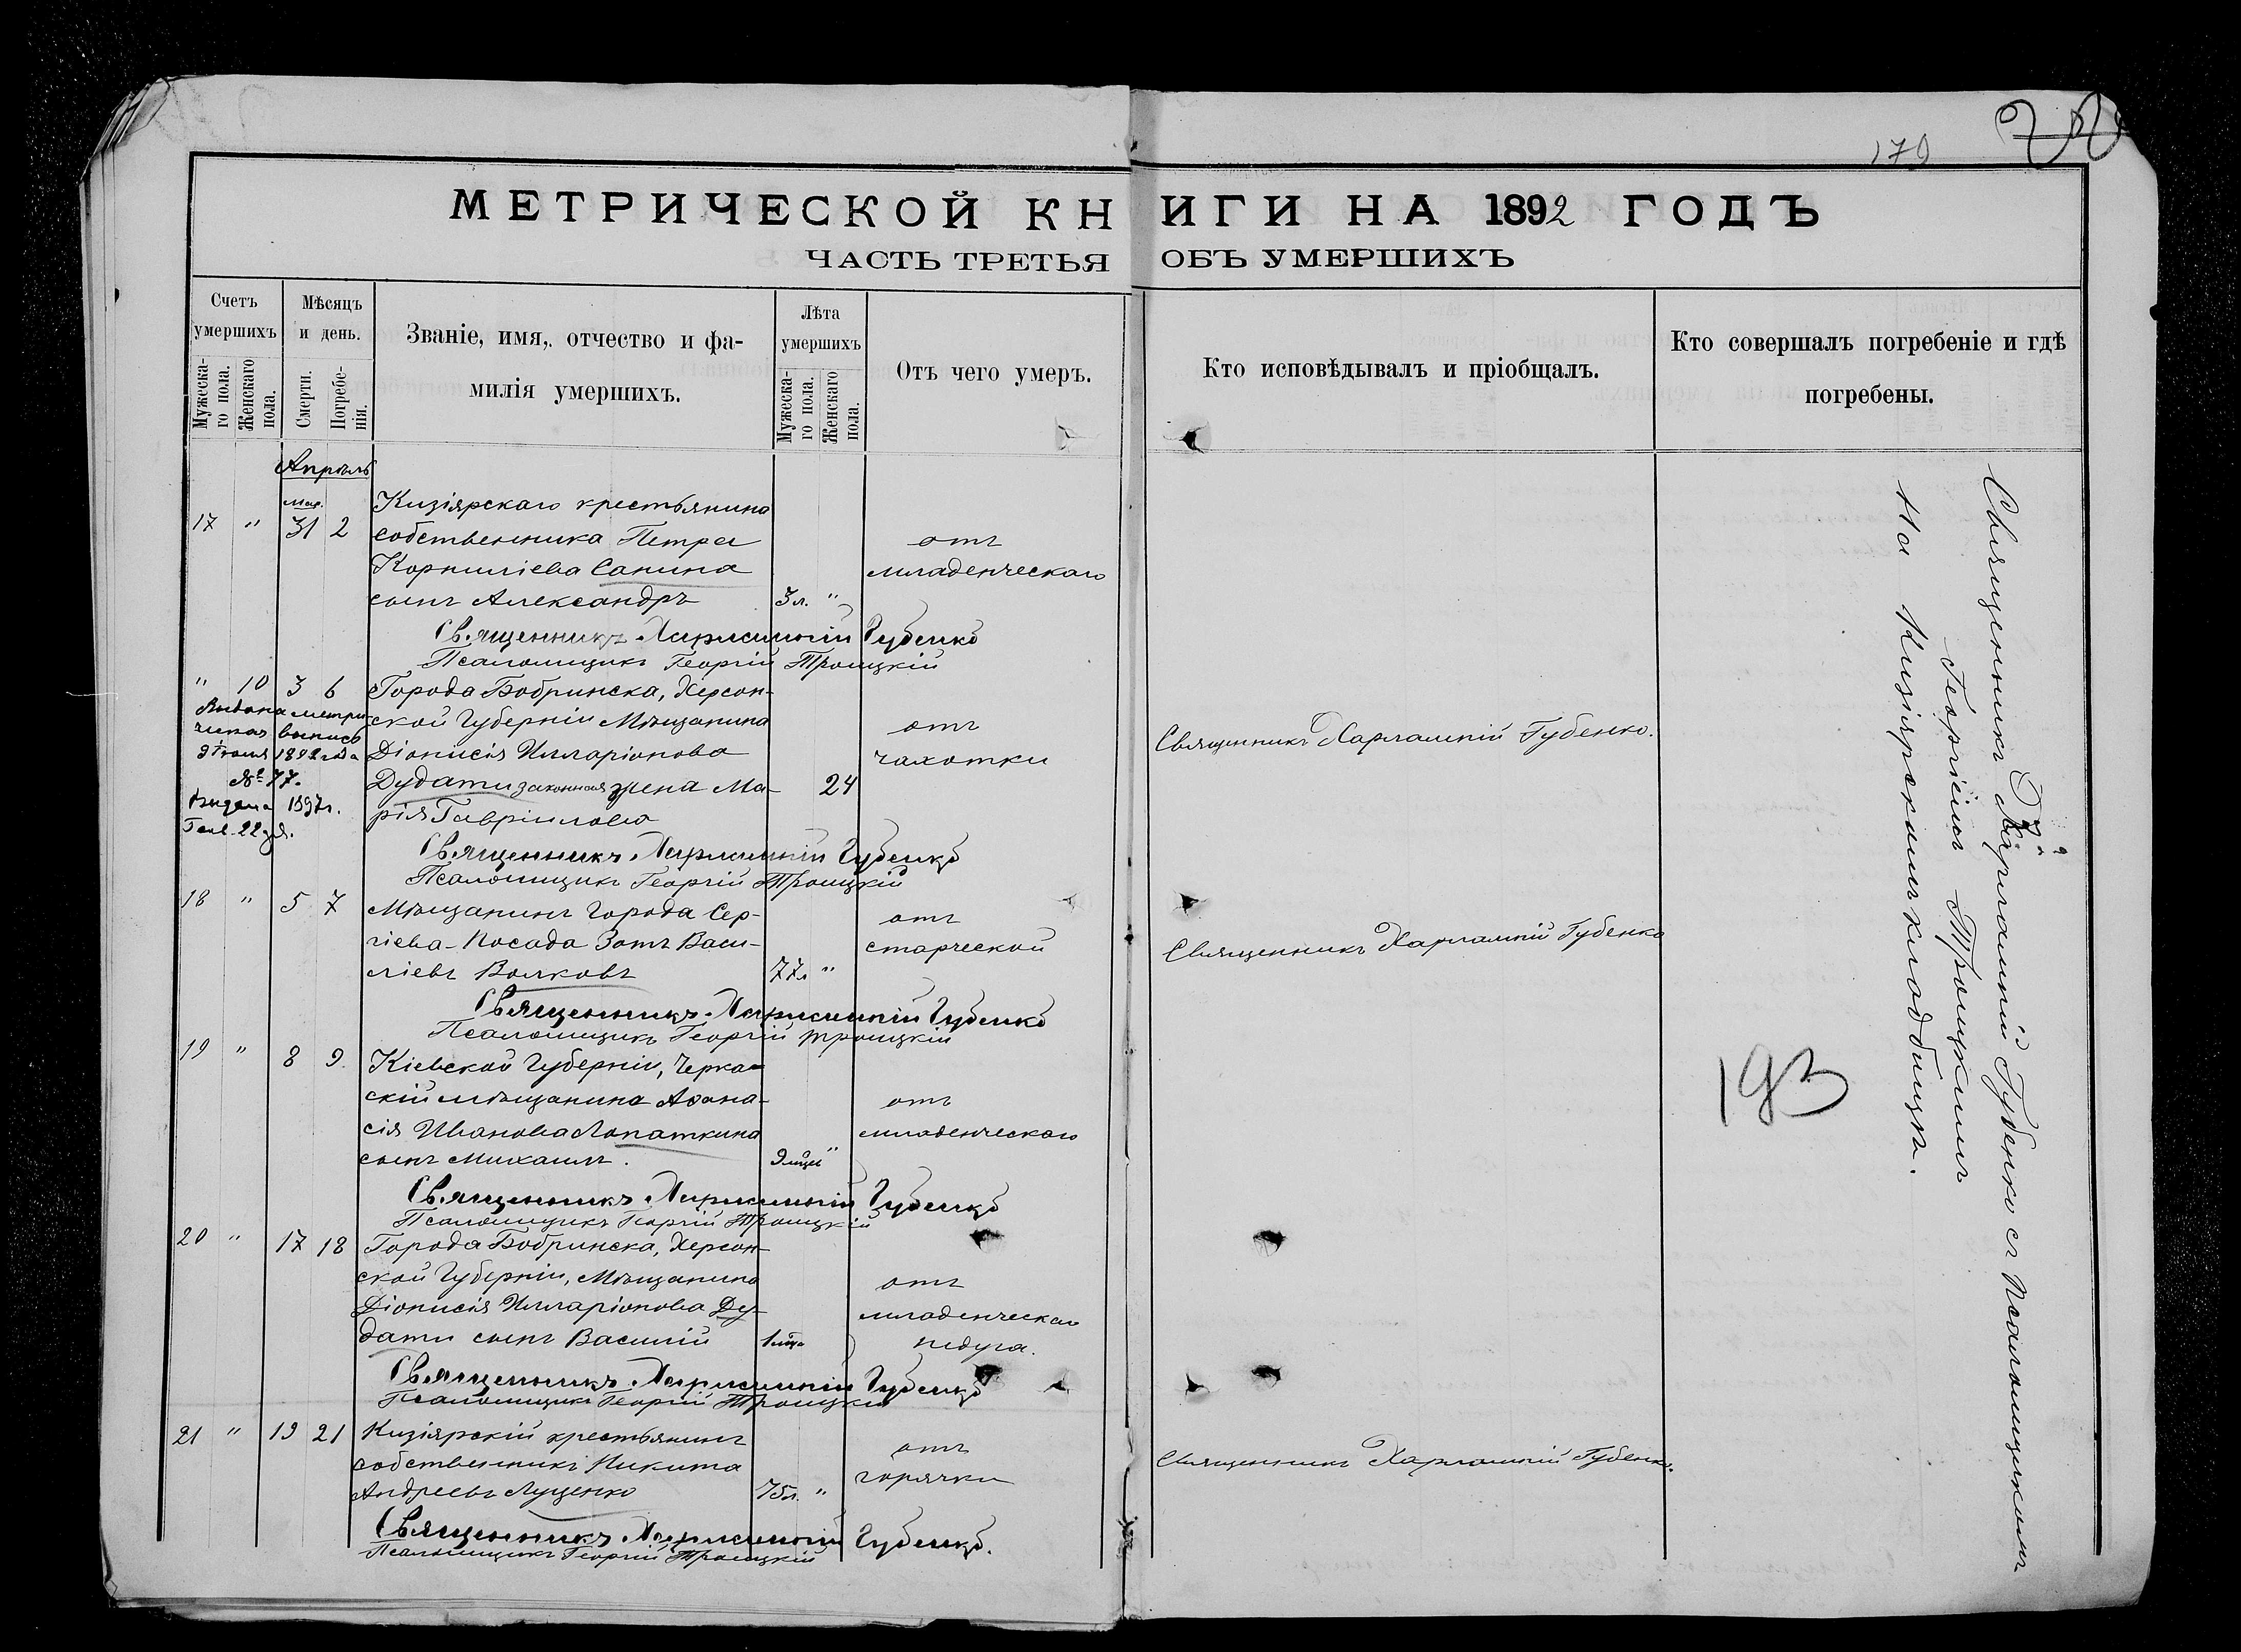 179
МЕТРИЧЕСКОЙ КНИГИ НА 1892 ГОДЪ
ЧАСТЬ ТРЕТЬЯ ОБЪ УМЕРШИХЪ
Счетъ умершихъ
Мѣсяцъ и день.
Званіе, имя, отчество и фа-
милія умершихъ.
Лѣта умершихъ
Отъ чего умеръ.
Кто исповѣдывалъ и пріобщалъ.
Кто совершалъ погребеніе и гдѣ
погребены.
Мужеска-
го пола.
Женскаго
пола.
Смерти.
Погребе-
нія.
Мужеска-
го пола.
Женскаго
пола.
Апрѣль
мар.
17 " 31 2 Кизіярскаго крестьянина
собственника Петра отъ
Корниліева Санина младенческаго
сынъ Александръ 3 л. "
Священникъ Харлампій Губенко
Псаломщикъ Георгій Троицкій
" 10 3 6 Города Бобринска, Херсон-
ской Губерніи Мѣщанина отъ
Діонисія Илларіонова чахотки
Дудати законная жена Ма- 24
рія Гавріилова
Священникъ Харлампій Губенко.
Выдана метри-
ческая выпись
9 Іюля 1892 года
№ 77.
Выдана 1897 г.
22
Священникъ Харлампій Губенко
Псаломщикъ Георгій Троицкій
18 " 5 7 Мѣщанинъ города Сер- отъ
гіева-Посада Зотъ Васи- старческой
ліевъ Волковъ 77 л "
Священникъ Харлампій Губенко
Священникъ Харлампій Губенко
Псаломщикъ Георгій Троицкій
19 " 8 9. Кіевской Губерніи, Черка-
скій мѣщанина Аѳана- отъ
сія Иванова Лопаткина младенческаго
сынъ Михаилъ. 9 мцев "
Священникъ Харлампій Губенко
Псаломщикъ Георгій Троицкій
20 " 17 18 Города Бобринска, Херсон-
ской Губерніи, Мѣщанина отъ
Діонисія Илларіонова Ду- младенческаго
дати сынъ Василій 1 мца недуга.
Священникъ Харлампій Губенко
Псаломщикъ Георгій Троицкій
21 " 19 21 Кизіярскій крестьянинъ отъ
собственникъ Никита горячки
Андреевъ Луценко 75 л. "
Священникъ Харлампій Губенко.
Священникъ Харлампій Губенко.
Псаломщикъ Георгій Троицкій
Священникъ Харлампій Губенко съ Псаломщикомъ
Георгіемъ Троицкимъ
На Кизіярскомъ кладбищѣ.
193